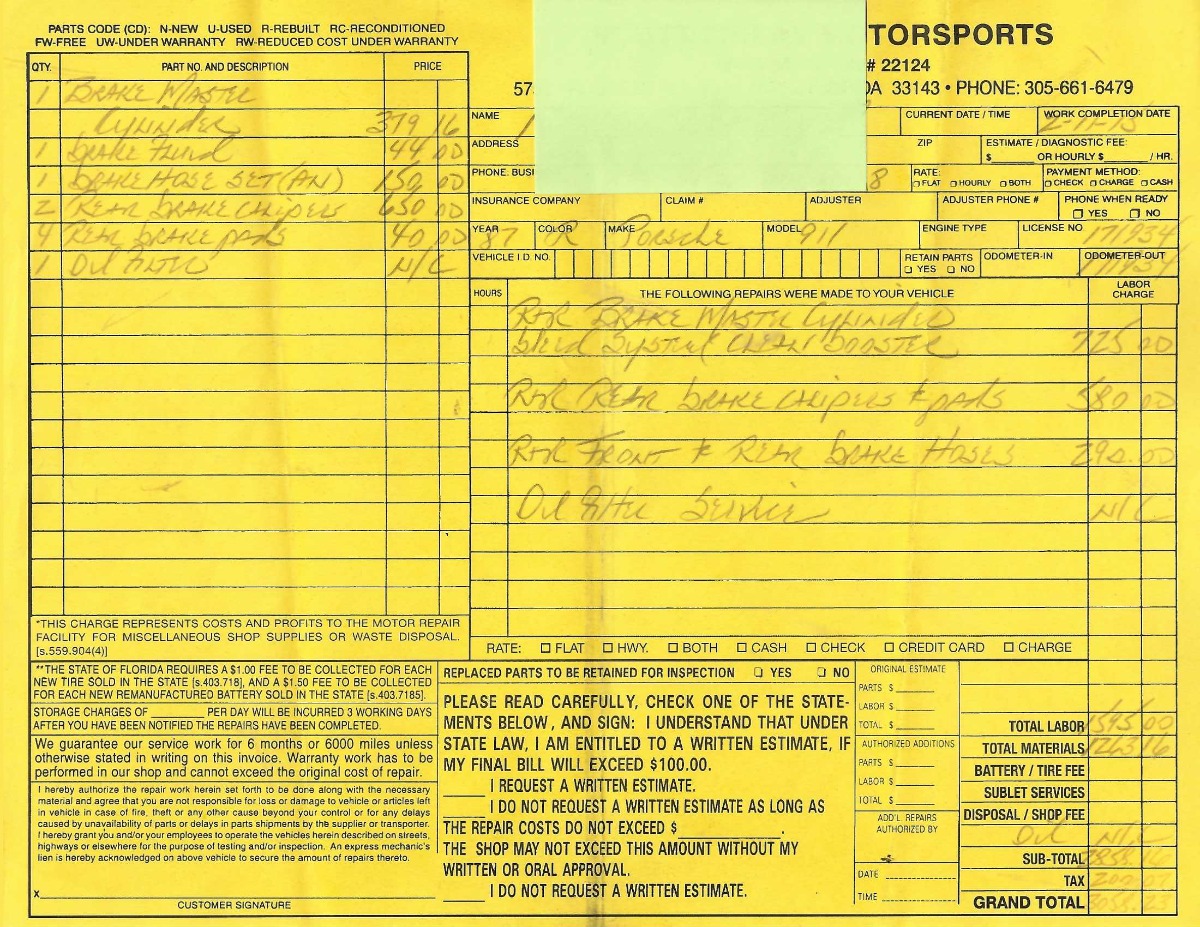 PARTS CODE (CD): N-NEW U-USED R-REBUILT RC-RECONDITIONED
FW-FREE UW-UNDER WARRANTY RW-REDUCED COST UNDER WARRANTY
TORSPORTS
# 22124
57
DA 33143 • PHONE: 305-661-6479
QTY. PART NO. AND DESCRIPTION PRICE
1 BRAKE MASTER
CYLINDER 379 16
1 BRAKE FLUID 44 00
1 BRAKE HOSE SET (AN) 150 00
2 REAR BRAKE CALIPERS 650 00
4 REAR BRAKE PADS 40 00
1 OIL FILTER N/C
NAME
CURRENT DATE / TIME
WORK COMPLETION DATE
ADDRESS
ZIP
ESTIMATE / DIAGNOSTIC FEE:
$ ______ OR HOURLY $ ______ / HR.
PHONE: BUSI
8
RATE:
FLAT HOURLY BOTH
PAYMENT METHOD:
CHECK CHARGE CASH
INSURANCE COMPANY
CLAIM #
ADJUSTER
ADJUSTER PHONE #
PHONE WHEN READY
YES NO
YEAR 87
COLOR
MAKE PORSCHE
MODEL 911
ENGINE TYPE
LICENSE NO 171934
VEHICLE I.D. NO.
RETAIN PARTS
YES NO
ODOMETER-IN
ODOMETER-OUT
171934
HOURS THE FOLLOWING REPAIRS WERE MADE TO YOUR VEHICLE LABOR CHARGE
R&R BRAKE MASTER CYLINDER
BLEED SYSTEM CLEAN BOOSTER 725 00
R&R REAR BRAKE CALIPERS & PADS 580 00
R&R FRONT & REAR BRAKE HOSES 290.00
OIL FILTER SERVICE N/C
RATE: FLAT HWY. BOTH CASH CHECK CREDIT CARD CHARGE
*THIS CHARGE REPRESENTS COSTS AND PROFITS TO THE MOTOR REPAIR
FACILITY FOR MISCELLANEOUS SHOP SUPPLIES OR WASTE DISPOSAL.
[s.559.904(4)]
**THE STATE OF FLORIDA REQUIRES A $1.00 FEE TO BE COLLECTED FOR EACH
NEW TIRE SOLD IN THE STATE [s.403.718], AND A $1.50 FEE TO BE COLLECTED
FOR EACH NEW REMANUFACTURED BATTERY SOLD IN THE STATE [s.403.7185].
STORAGE CHARGES OF ________ PER DAY WILL BE INCURRED 3 WORKING DAYS
AFTER YOU HAVE BEEN NOTIFIED THE REPAIRS HAVE BEEN COMPLETED.
We guarantee our service work for 6 months or 6000 miles unless
otherwise stated in writing on this invoice. Warranty work has to be
performed in our shop and cannot exceed the original cost of repair.
I hereby authorize the repair work herein set forth to be done along with the necessary
material and agree that you are not responsible for loss or damage to vehicle or articles left
in vehicle in case of fire, theft or any other cause beyond your control or for any delays
caused by unavailability of parts or delays in parts shipments by the supplier or transporter.
I hereby grant you and/or your employees to operate the vehicles herein described on streets,
highways or elsewhere for the purpose of testing and/or inspection. An express mechanic's
lien is hereby acknowledged on above vehicle to secure the amount of repairs thereto.
X
CUSTOMER SIGNATURE
REPLACED PARTS TO BE RETAINED FOR INSPECTION YES NO
PLEASE READ CAREFULLY, CHECK ONE OF THE STATE-
MENTS BELOW, AND SIGN: I UNDERSTAND THAT UNDER
STATE LAW, I AM ENTITLED TO A WRITTEN ESTIMATE, IF
MY FINAL BILL WILL EXCEED $100.00.
____ I REQUEST A WRITTEN ESTIMATE.
____ I DO NOT REQUEST A WRITTEN ESTIMATE AS LONG AS
THE REPAIR COSTS DO NOT EXCEED $ ________.
THE SHOP MAY NOT EXCEED THIS AMOUNT WITHOUT MY
WRITTEN OR ORAL APPROVAL.
____ I DO NOT REQUEST A WRITTEN ESTIMATE.
ORIGINAL ESTIMATE
PARTS $
LABOR $
TOTAL $
AUTHORIZED ADDITIONS
PARTS $
LABOR $
TOTAL $
ADD'L. REPAIRS
AUTHORIZED BY
DATE
TIME
TOTAL LABOR 1595 00
TOTAL MATERIALS 1263 16
BATTERY / TIRE FEE
SUBLET SERVICES
DISPOSAL / SHOP FEE
OIL N/C
SUB-TOTAL 2858 16
TAX 200 07
GRAND TOTAL 3058.23